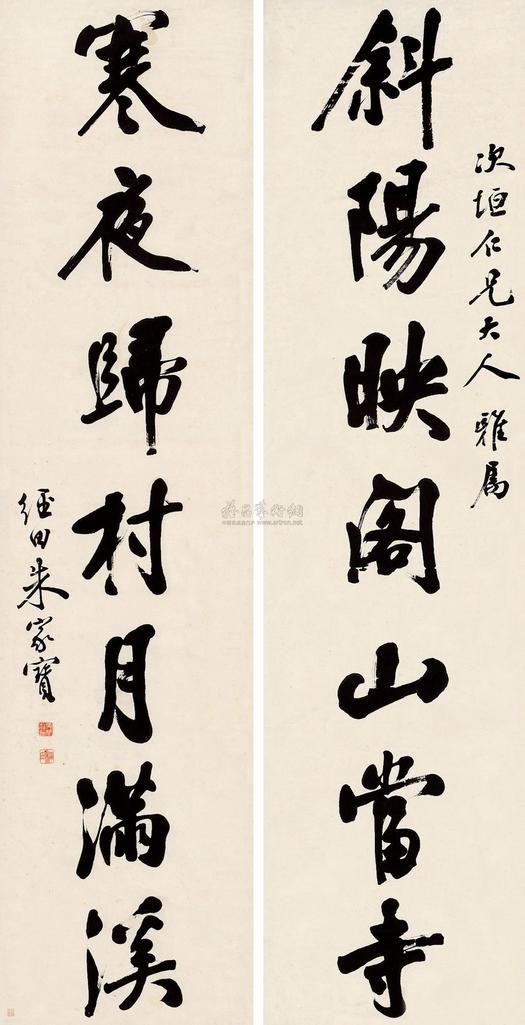 次垣仁兄大人 雅属
斜陽映阁山當寺
寒夜歸村月滿溪
經田朱家寶
www.artron.net